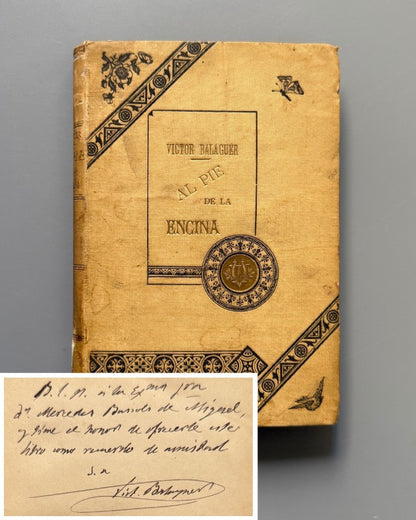 VICTOR BALAGUER
AL PIE
DE LA
ENCINA
B. l. m. a la Exma Sra
Dª Mercedes Bassols de Miguel,
y tiene el honor de ofrecerle este
libro como recuerdo de amistad
S. a
Vict. Balaguer